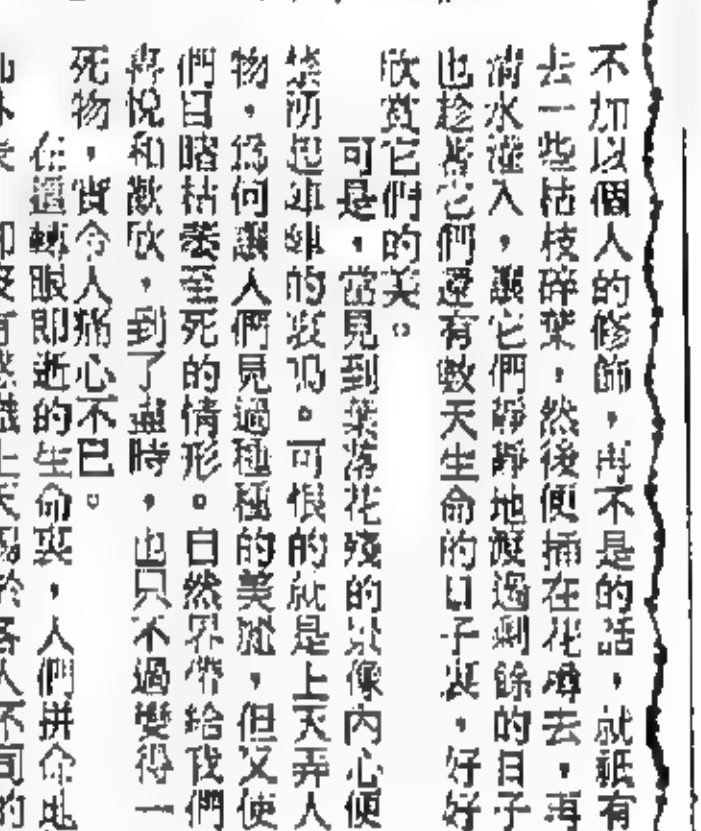 不加以個人的修飾，再不是的話，就祇有
去一些枯枝碎葉，然後便插在花樽去，再
清水灌入，讓它們靜靜地渡過剩餘的日子
也趁著它們還有數天生命的日子裏，好好
欣賞它們的美。
可是，當見到葉落花殘的景像內心便
禁起陣陣的哀。可恨的就是上天弄人
物，為何讓人們見過種種的美，但又使
們目睹枯萎至死的情形。自然界帶給我們
喜悅和歡欣，到了盡時，也只不過變得一
死物，實令人痛心不已。
在這轉眼即逝的生命裏，人們拼命地